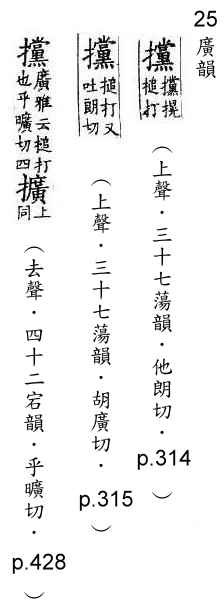 25
廣韻
攩 攩搥搥打 （上聲．三十七蕩韻．他朗切．p.314）
攩 搥打又吐朗切 （上聲．三十七蕩韻．胡廣切．p.315）
攩 廣雅云搥打也乎曠切四 擴 上同 （去聲．四十二宕韻．乎曠切．p.428）